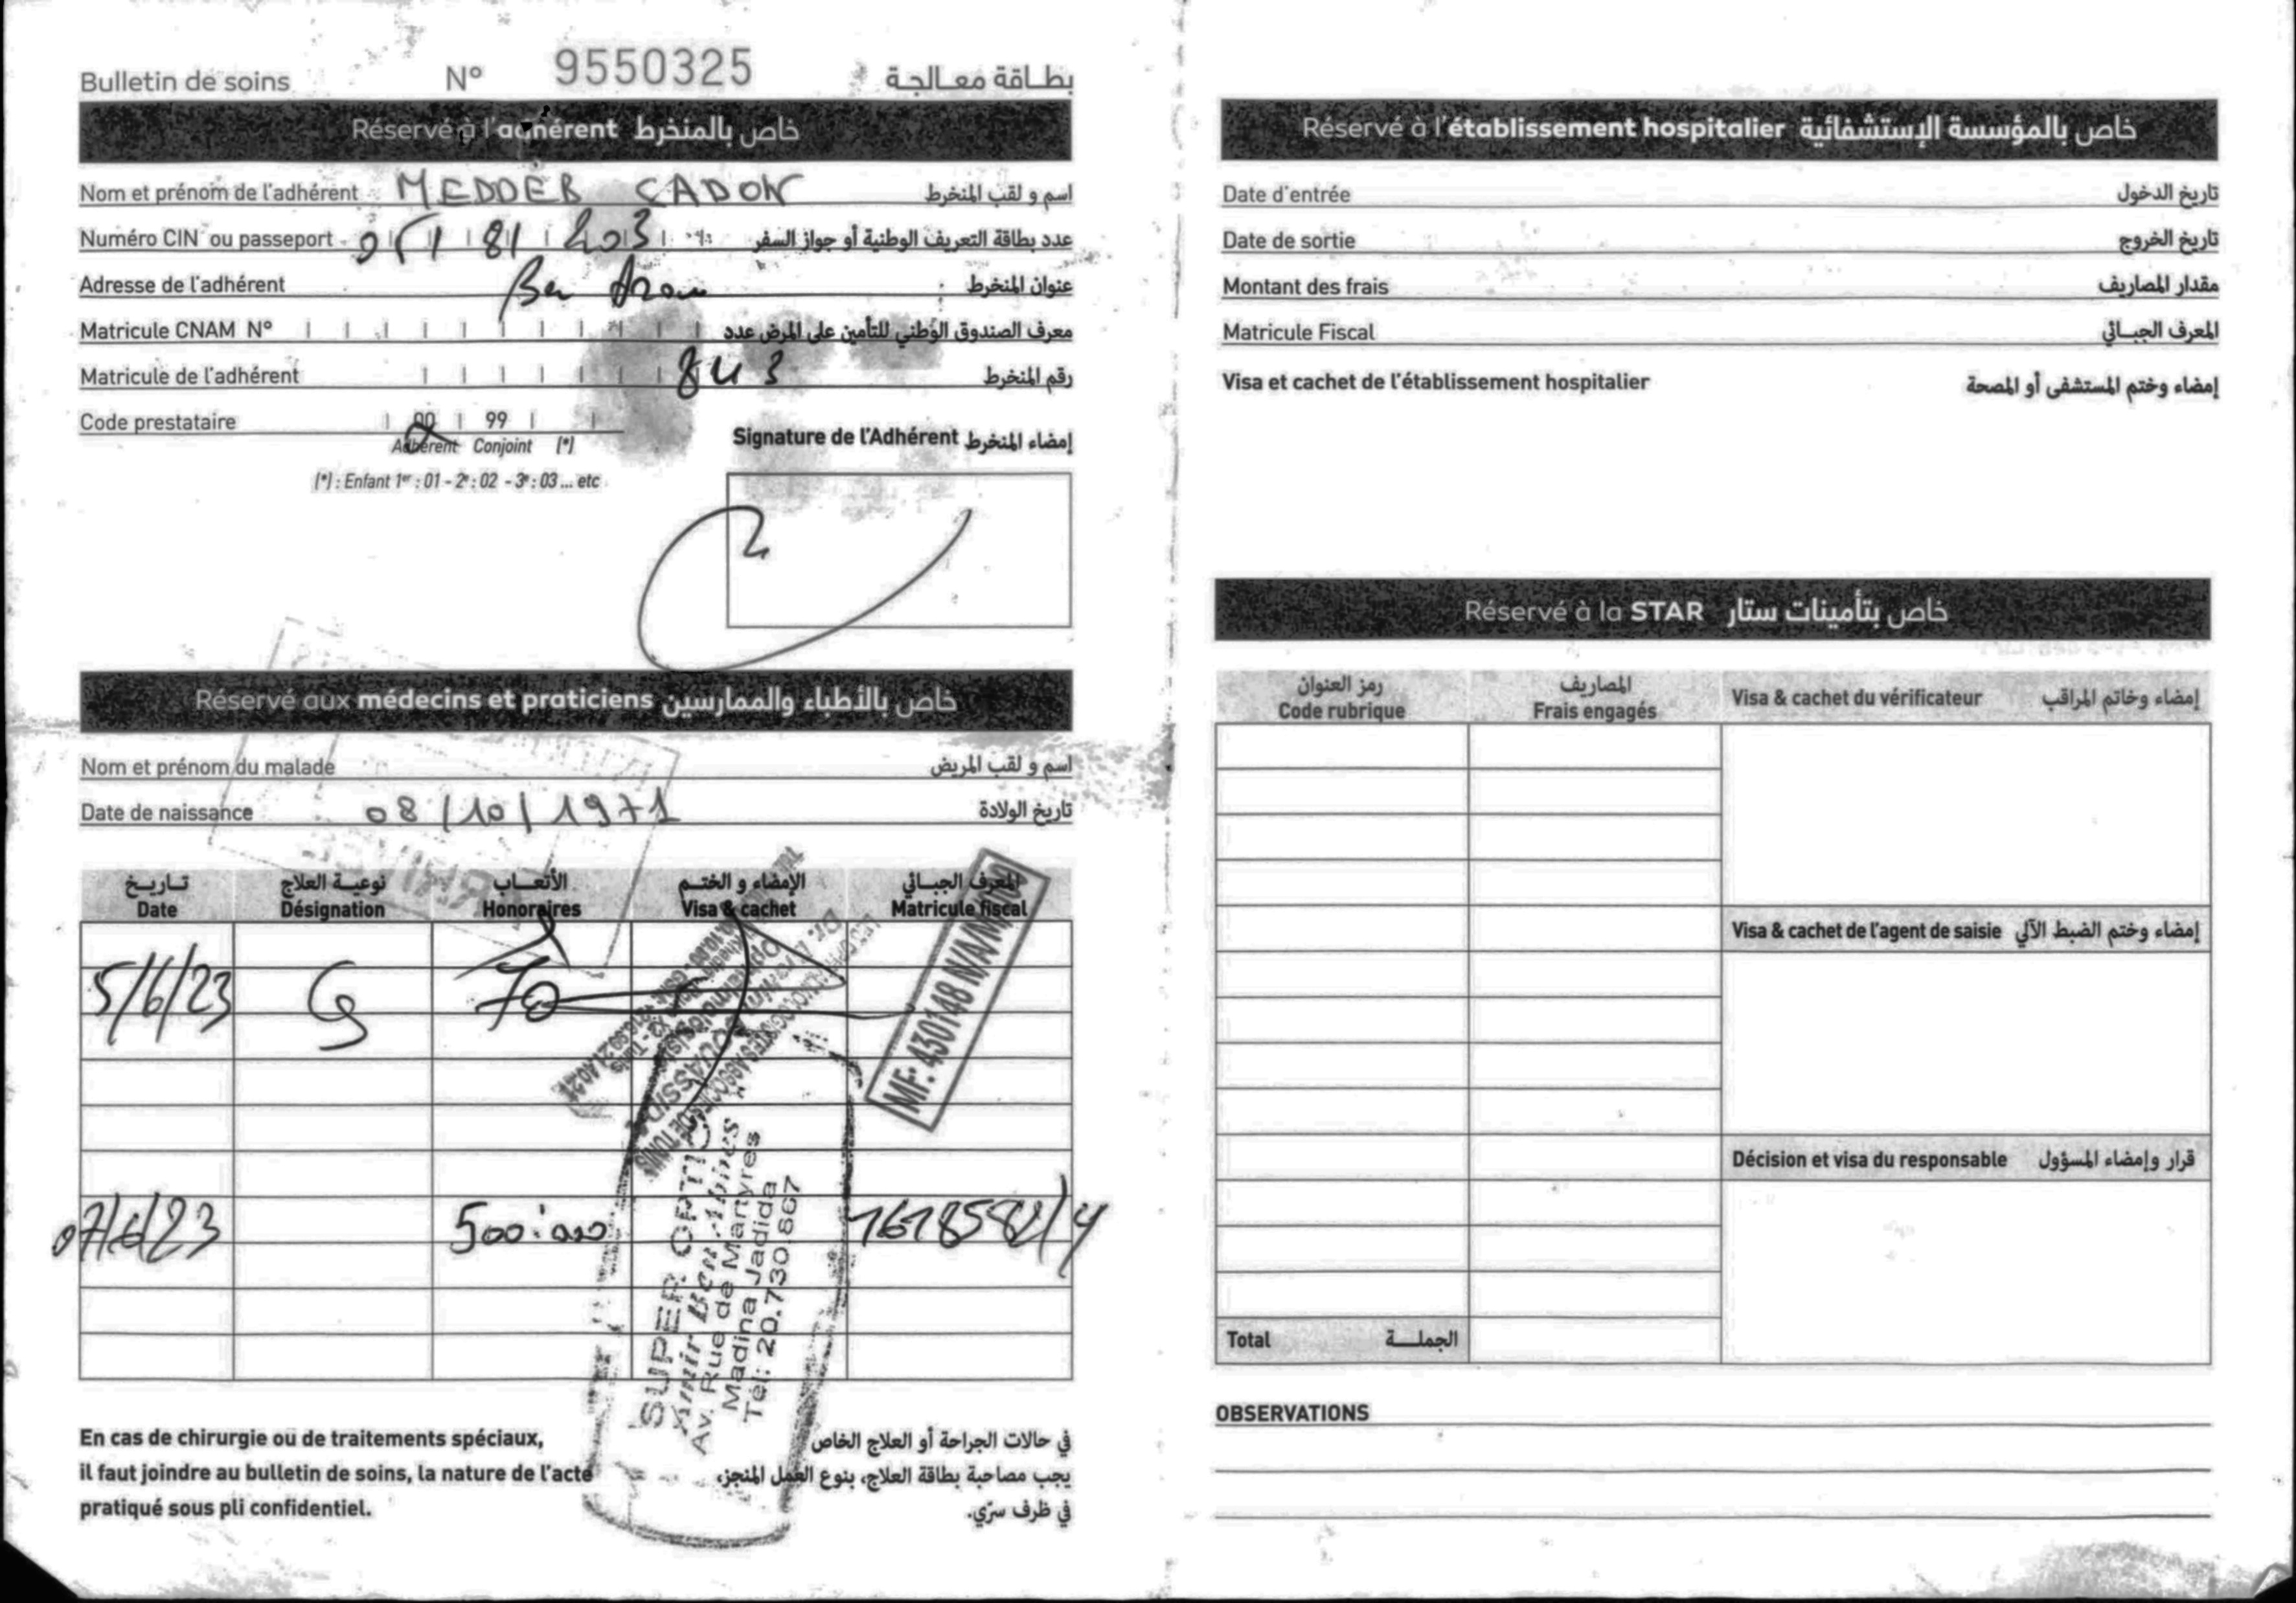 Bulletin de soins N° 9550325 بطاقة معالجة
Réservé à l'adhérent خاص بالمنخرط
Nom et prénom de l'adhérent MEDDEB CADON اسم و لقب المنخرط
Numéro CIN ou passeport عدد بطاقة التعريف الوطنية أو جواز السفر
Adresse de l'adhérent Ben عنوان المنخرط
Matricule CNAM N° معرف الصندوق الوطني للتأمين على المرض عدد
Matricule de l'adhérent 843 رقم المنخرط
Code prestataire 00 99
Adhérent Conjoint (*)
(*) : Enfant 1er : 01 - 2e : 02 - 3e : 03 ... etc
Signature de l'Adhérent إمضاء المنخرط
Réservé aux médecins et praticiens خاص بالأطباء والممارسين
Nom et prénom du malade اسم و لقب المريض
Date de naissance 08/10/1971 تاريخ الولادة
تاريخ نوعية العلاج الأتعاب الإمضاء و الختم المعرف الجبائي
Date Désignation Honoraires Visa & cachet Matricule fiscal
5/6/23 70
MF: 430148 N/A/M/000
07/6/23 500.000 1618582/Y
SUPER OPTIC
Amir Ben Abbes
Av. Rue de Martyres
Madina Jadida
Tél: 20.730 667
En cas de chirurgie ou de traitements spéciaux,
il faut joindre au bulletin de soins, la nature de l'acte
pratiqué sous pli confidentiel.
في حالات الجراحة أو العلاج الخاص
يجب مصاحبة بطاقة العلاج، بنوع العمل المنجز،
في ظرف سرّي.
Réservé à l'établissement hospitalier خاص بالمؤسسة الإستشفائية
Date d'entrée تاريخ الدخول
Date de sortie تاريخ الخروج
Montant des frais مقدار المصاريف
Matricule Fiscal المعرف الجبائي
Visa et cachet de l'établissement hospitalier إمضاء وختم المستشفى أو المصحة
Réservé à la STAR خاص بتأمينات ستار
رمز العنوان المصاريف
Code rubrique Frais engagés Visa & cachet du vérificateur إمضاء وخاتم المراقب
Visa & cachet de l'agent de saisie إمضاء وختم الضبط الآلي
Décision et visa du responsable قرار وإمضاء المسؤول
Total الجملة
OBSERVATIONS